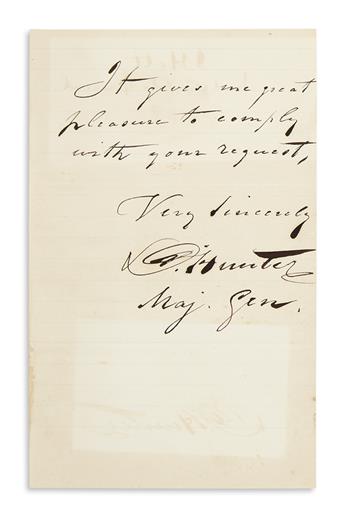 It gives me great
pleasure to comply
with your request,
Very Sincerely
D. Hunter
Maj. Gen.